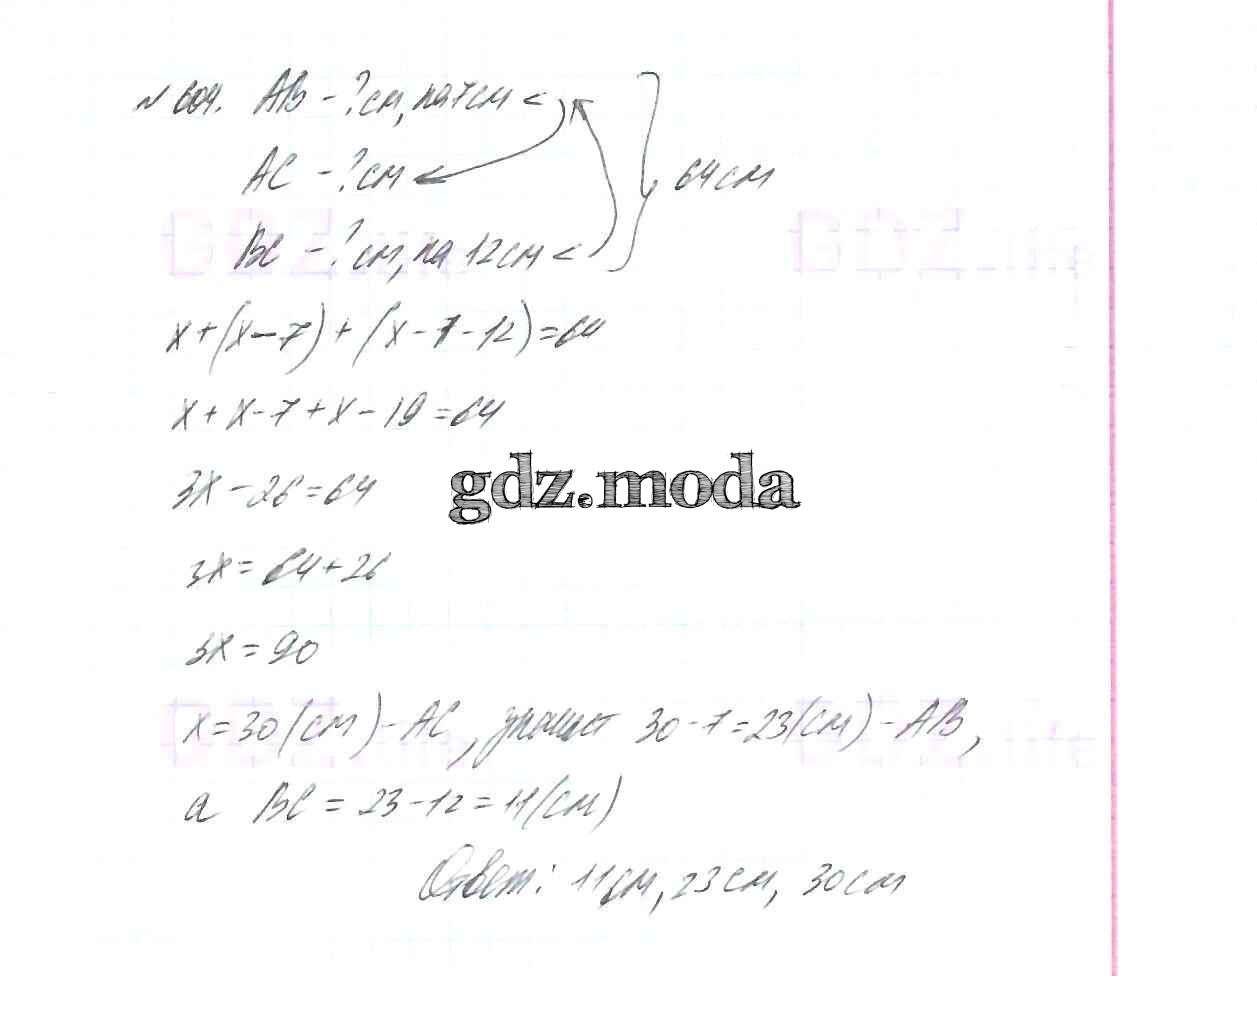 № 604. АВ - ? см, на 7 см <
АС - ? см
64 см
ВС - ? см, на 12 см <
GDZ
GDZ
x + (x - 7) + (x - 7 - 12) = 64
x + x - 7 + x - 19 = 64
3x - 26 = 64
gdz.moda
3x = 64 + 26
3x = 90
x = 30 (см) - АС, значит 30 - 7 = 23 (см) - АВ,
а ВС = 23 - 12 = 11 (см)
Ответ: 11 см, 23 см, 30 см